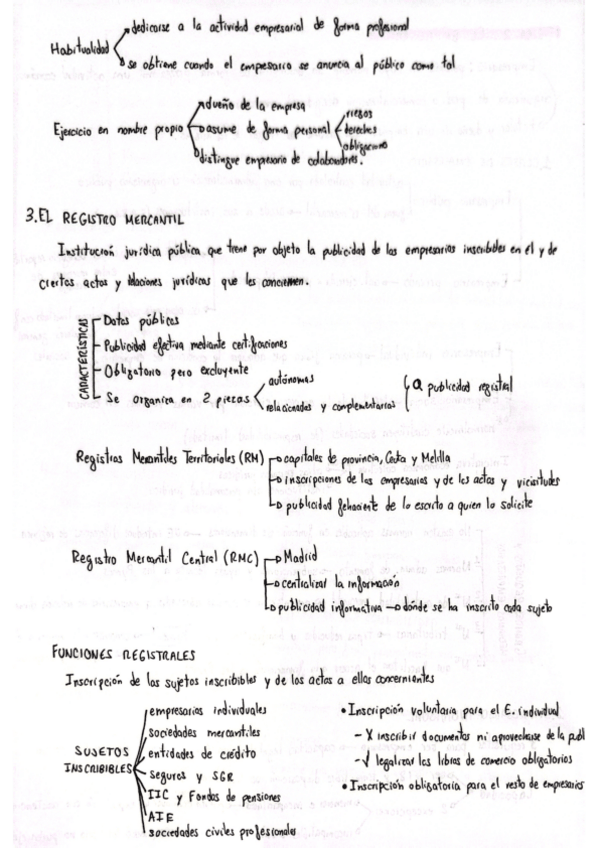 Habitualidad
dedicarse a la actividad empresarial de forma profesional
se obtiene cuando el empresario se anuncia al público como tal
Ejercicio en nombre propio
dueño de la empresa
asume de forma personal
riesgos
derechos
obligaciones
distingue empresario de colaboradores.
3. EL REGISTRO MERCANTIL
Institución jurídica pública que tiene por objeto la publicidad de los empresarios inscribibles en el y de
ciertos actos y relaciones jurídicas que les conciernen.
CARACTERÍSTICAS
Datos públicos
Publicidad efectiva mediante certificaciones
Obligatorio pero excluyente
Se organiza en 2 piezas
autónomas
relacionadas y complementarias
publicidad registral
Registros Mercantiles Territoriales (RM)
capitales de provincia, Ceuta y Melilla
inscripciones de los empresarios y de los actos y vicisitudes
publicidad fehaciente de lo escrito a quien lo solicite
Registro Mercantil Central (RMC)
Madrid
centralizar la información
publicidad informativa → dónde se ha inscrito cada sujeto
FUNCIONES REGISTRALES
Inscripción de los sujetos inscribibles y de los actos a ellos concernientes
SUJETOS
INSCRIBIBLES
empresarios individuales
sociedades mercantiles
entidades de crédito
Seguros y SGR
IIC y Fondos de pensiones
AIE
sociedades civiles profesionales
• Inscripción voluntaria para el E. individual
- X inscribir documentos ni aprovecharse de la publ
- √ legalizar los libros de comercio obligatorios
• Inscripción obligatoria para el resto de empresarios